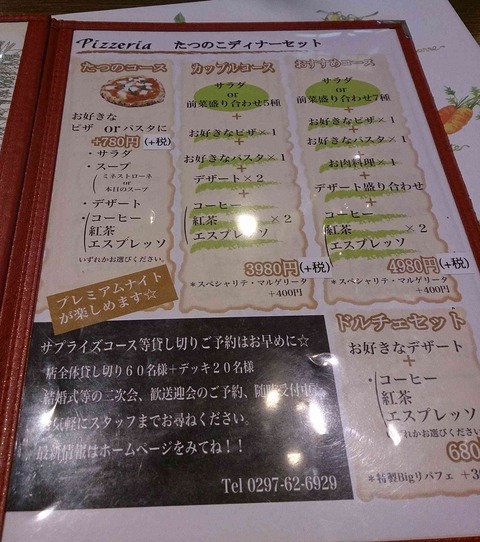 Pizzeria たつのこディナーセット
たつのコース
お好きな
ピザ orパスタに
+780円(+税)
・サラダ
・スープ
(ミネストローネ
or
本日のスープ)
・デザート
・コーヒー
紅茶
エスプレッソ
いずれかお選びください。
カップルコース
サラダ
or
前菜盛り合わせ5種
+
お好きなピザ×1
+
お好きなパスタ×1
+
デザート×2
+
コーヒー
紅茶 ×2
エスプレッソ
3980円(+税)
*スペシャリテ・マルゲリータ
+400円
おすすめコース
サラダ
or
前菜盛り合わせ7種
+
お好きなピザ×1
+
お好きなパスタ×1
+
お肉料理×1
+
デザート盛り合わせ
+
コーヒー
紅茶 ×2
エスプレッソ
4980円(+税)
*スペシャリテ・マルゲリータ
+400円
プレミアムナイト
が楽しめます☆
サプライズコース等貸し切りご予約はお早めに☆
店全体貸し切り60名様+デッキ20名様
結婚式等の二次会、歓送迎会のご予約、随時受付中
気軽にスタッフまでお尋ねください。
最新情報はホームページをみてね!!
Tel 0297-62-6929
ドルチェセット
お好きなデザート
+
・コーヒー
紅茶
エスプレッソ
いずれかお選びください
680
*特製Bigリパフェ